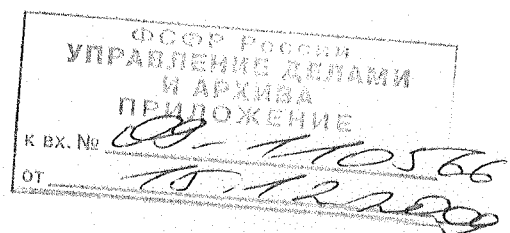 ФСФР России
УПРАВЛЕНИЕ ДЕЛАМИ
И АРХИВА
ПРИЛОЖЕНИЕ
К ВХ. № 09-1110566
ОТ 15.12.2009